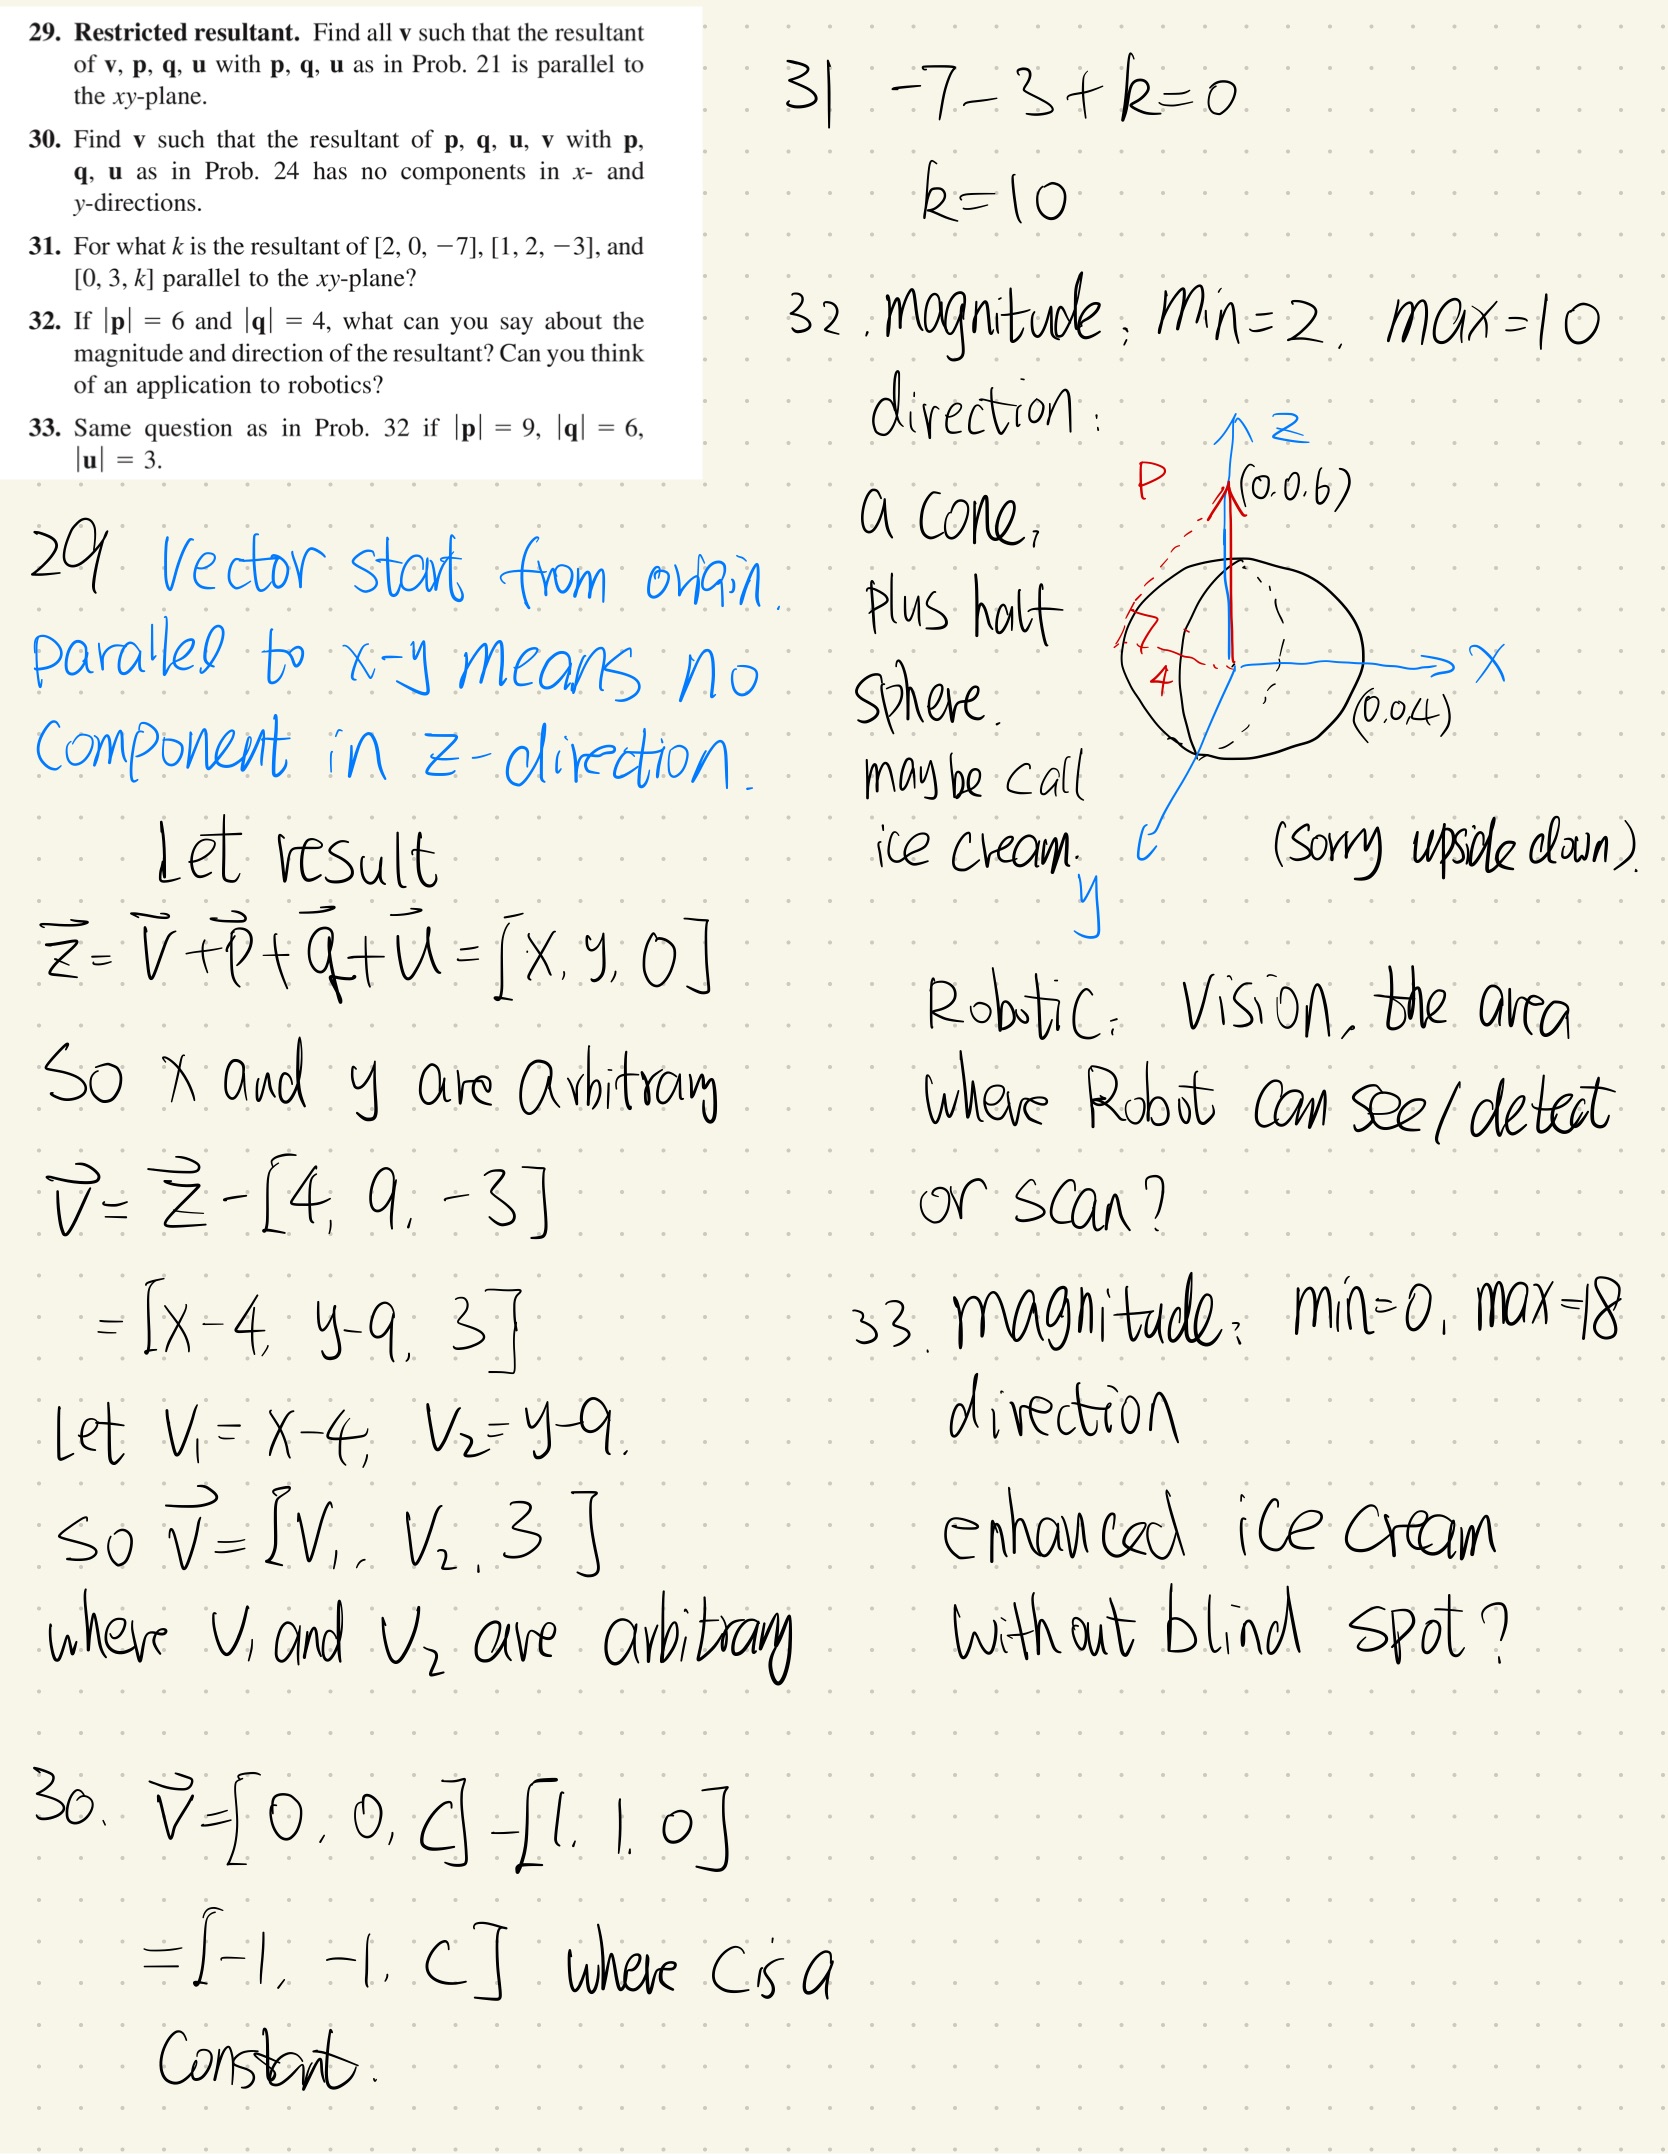 29. Restricted resultant. Find all v such that the resultant
of v, p, q, u with p, q, u as in Prob. 21 is parallel to
the xy-plane.
30. Find v such that the resultant of p, q, u, v with p,
q, u as in Prob. 24 has no components in x- and
y-directions.
31. For what k is the resultant of [2, 0, −7], [1, 2, −3], and
[0, 3, k] parallel to the xy-plane?
32. If |p| = 6 and |q| = 4, what can you say about the
magnitude and direction of the resultant? Can you think
of an application to robotics?
33. Same question as in Prob. 32 if |p| = 9, |q| = 6,
|u| = 3.
29. Vector start from origin.
parallel to x-y means no
component in z-direction.
Let result
z⃗ = v⃗ + p⃗ + q⃗ + u⃗ = [x, y, 0]
So x and y are arbitrary
v⃗ = z⃗ - [4, 9, -3]
= [x-4, y-9, 3]
Let V₁ = x-4, V₂ = y-9.
So v⃗ = [V₁, V₂, 3]
where V₁ and V₂ are arbitrary
30. v⃗ = [0, 0, C] - [1, 1, 0]
= [-1, -1, C] where C is a
Constant.
31 -7-3+k=0
k=10
32. magnitude: min=2, max=10
direction:
a cone,
plus half
sphere.
maybe call
ice cream.
z
P
(0.0.6)
4
x
(0.0.4)
y
(sorry upside down).
Robotic: Vision, the area
where Robot can see/detect
or scan?
33. magnitude: min=0, max=18
direction
enhanced ice cream
without blind spot?